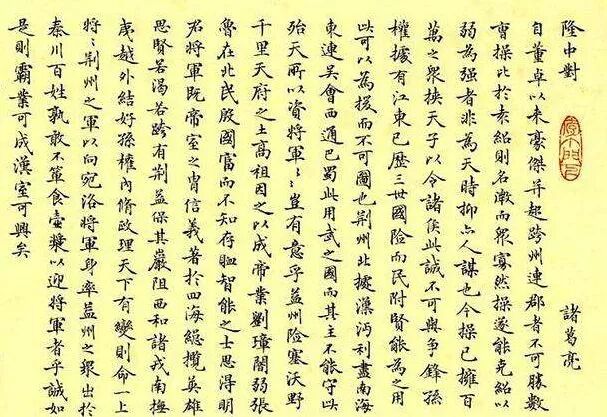 隆中對
諸葛亮
自董卓以来豪傑并起跨州連郡者不可勝數
曹操比於袁紹則名微而眾寡然操遂能克紹以
弱為强者非為天時抑亦人謀也今操已擁百
萬之眾挾天子以令諸侯此誠不可與争鋒孫
權據有江東已歷三世國险而民附賢能為之用
此可以為援而不可圖也荆州北據漢沔利盡南海
東連吴會西通巴蜀此用武之國而其主不能守此
殆天所以資將軍〻〻豈有意乎益州险塞沃野
千里天府之土高祖因之以成帝業劉璋闇弱張
魯在北民殷國富而不知存恤智能之士思得明
君將軍既帝室之胄信義著於四海總攬英雄
思賢若渴若跨有荆益保其巖阻西和諸戎南撫
夷越外結好孫權内脩政理天下有變則命一上
將〻荆州之軍以向宛洛將軍身率益州之眾出於
秦川百姓孰敢不簞食壺漿以迎將軍者乎誠如
是則霸業可成漢室可興矣